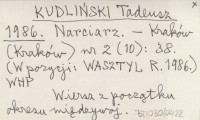 KUDLIŃSKI Tadeusz
1986. Narciarz. – Kraków
(Kraków) nr 2 (10): 38.
(W pozycji: WASZTYL R. 1986.)
WHP
Wiersz z początku
okresu międzywoj.